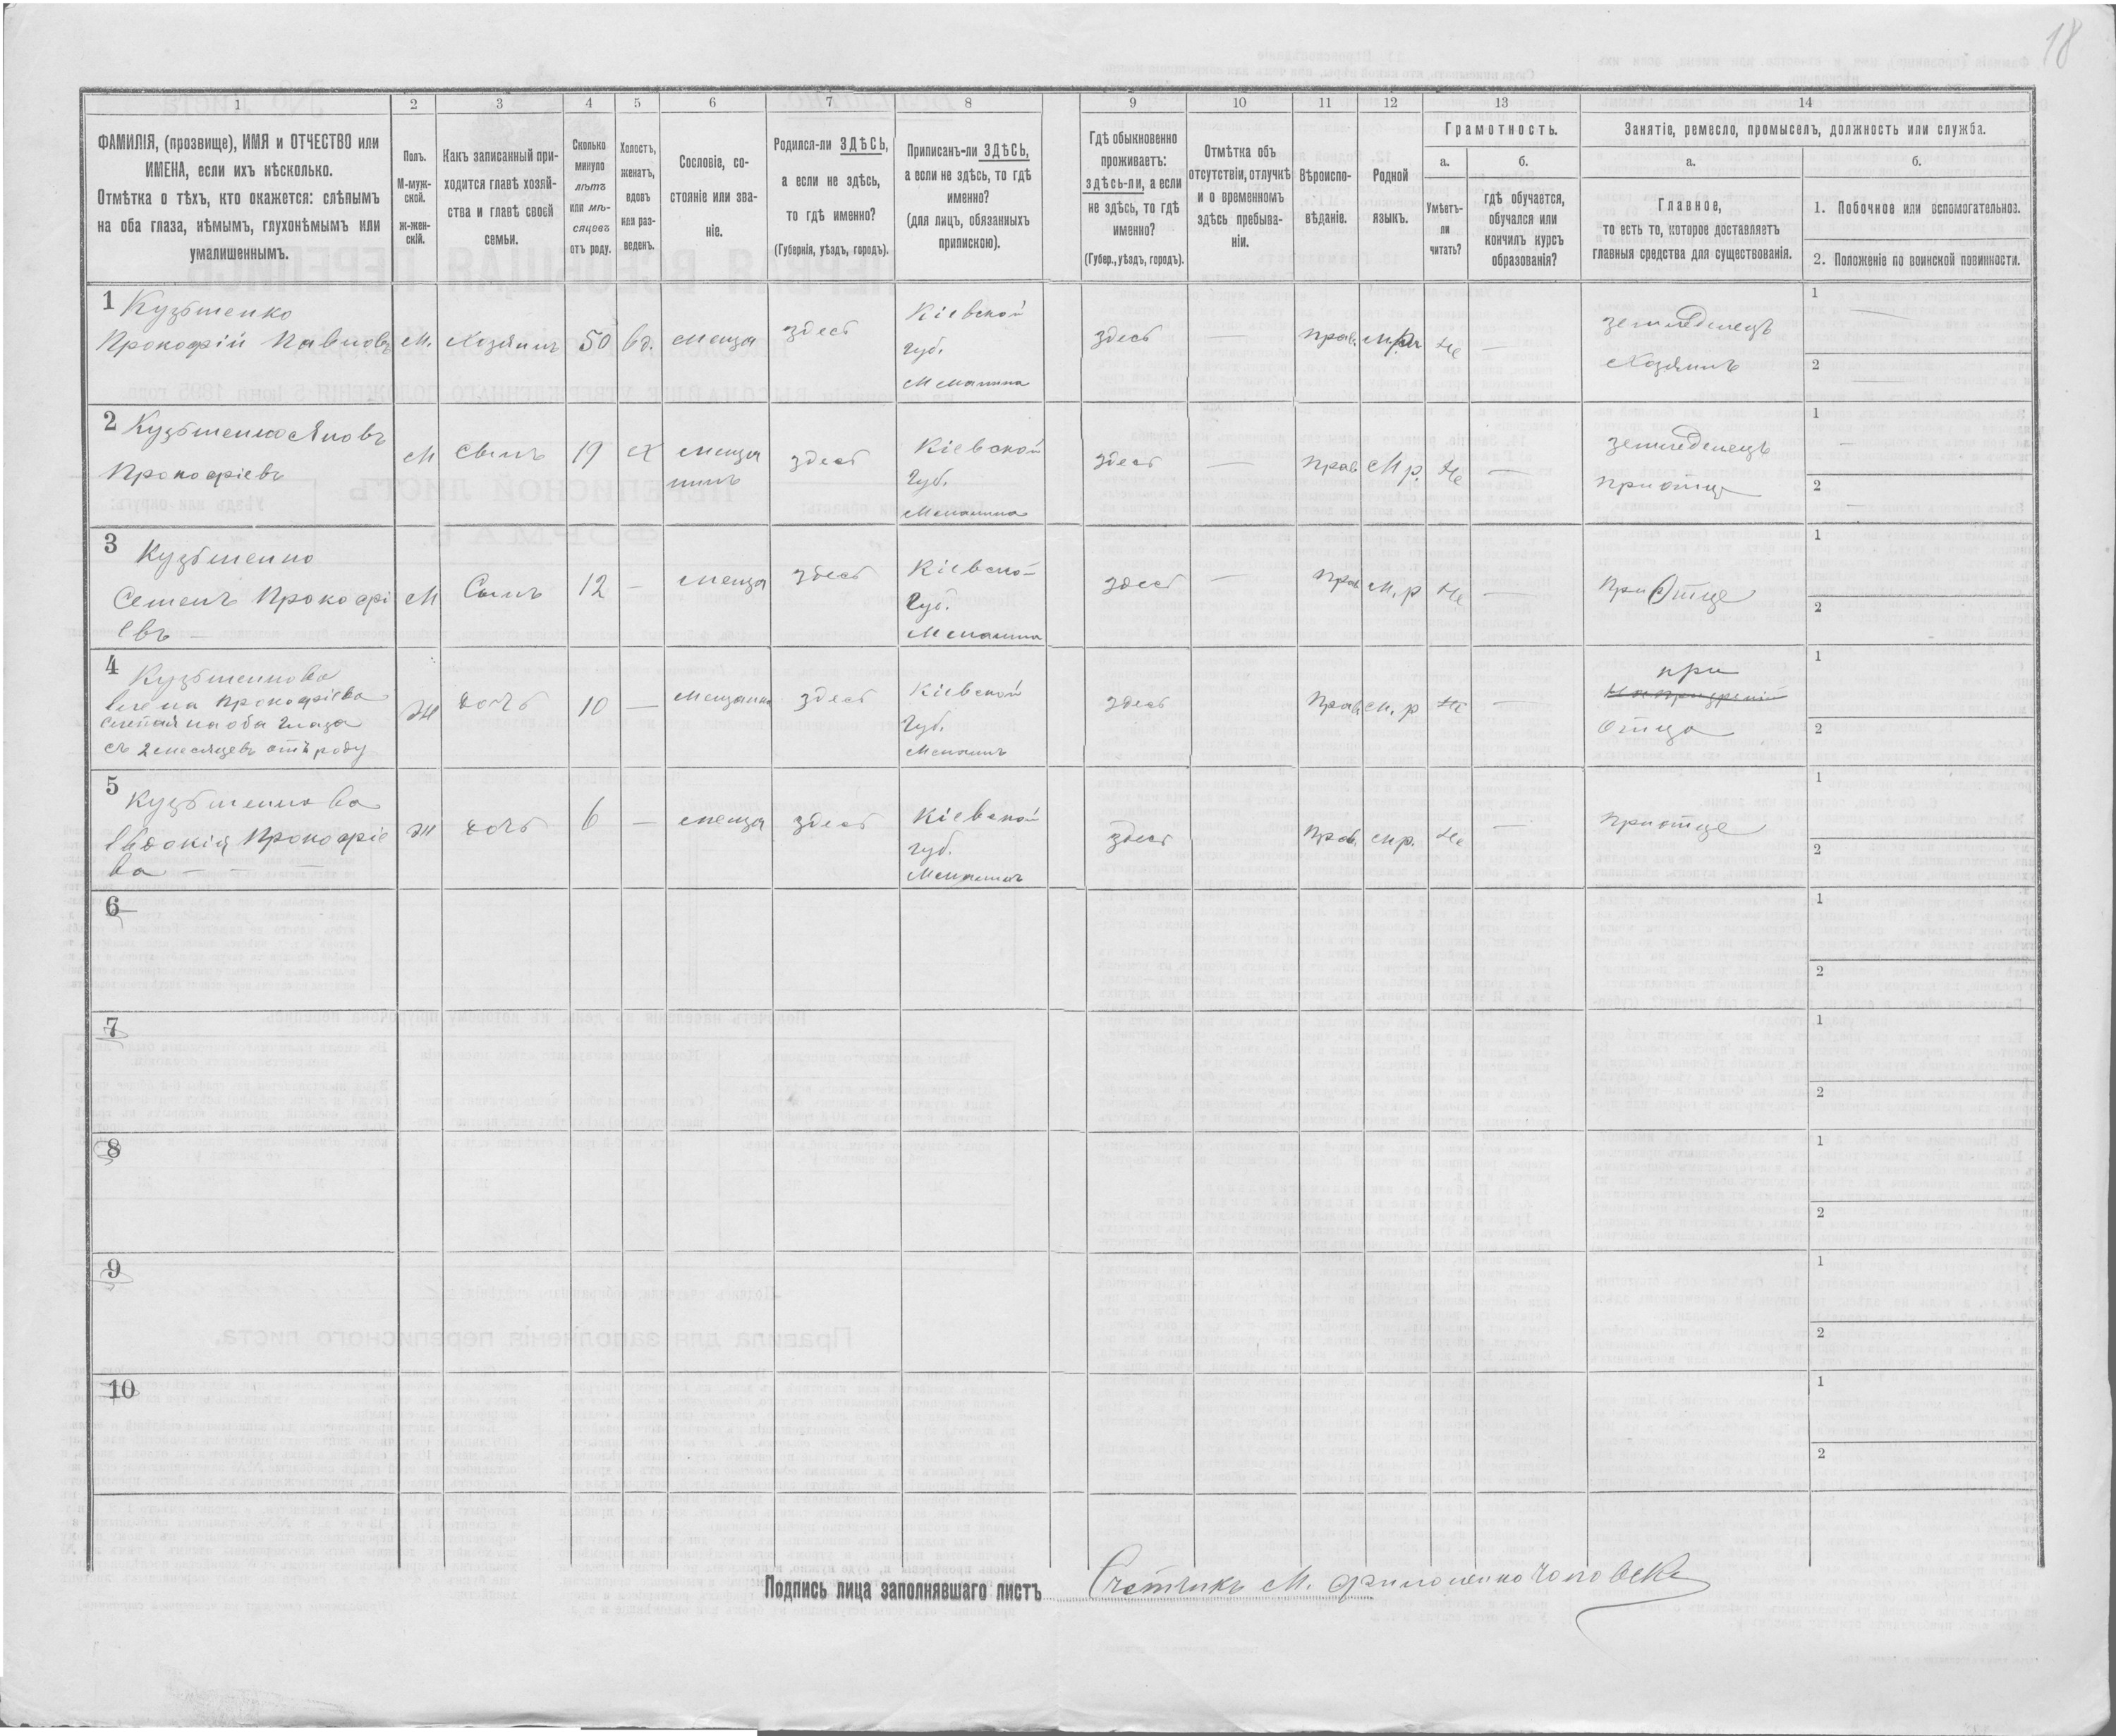 18
1
2
3
4
5
6
7
8
9
10
11
12
13
14
ФАМИЛІЯ, (прозвище), ИМЯ и ОТЧЕСТВО или
ИМЕНА, если ихъ нѣсколько.
Отмѣтка о тѣхъ, кто окажется: слѣпымъ
на оба глаза, нѣмымъ, глухонѣмымъ или
умалишеннымъ.
Полъ.
М-муж-
ской.
ж-жен-
скій.
Какъ записанный при-
ходится главѣ хозяй-
ства и главѣ своей
семьи.
Сколько
минуло
лѣтъ
или мѣ-
сяцевъ
отъ роду.
Холостъ,
женатъ,
вдовъ
или раз-
веденъ.
Сословіе, со-
стояніе или зва-
ніе.
Родился-ли ЗДѢСЬ,
а если не здѣсь,
то гдѣ именно?
(Губернія, уѣздъ, городъ).
Приписанъ-ли ЗДѢСЬ,
а если не здѣсь, то гдѣ
именно?
(для лицъ, обязанныхъ
припискою).
Гдѣ обыкновенно
проживаетъ:
здѣсь-ли, а если
не здѣсь, то гдѣ
именно?
(Губер., уѣздъ, городъ).
Отмѣтка объ
отсутствіи, отлучкѣ
и о временномъ
здѣсь пребыва-
ніи.
Вѣроиспо-
вѣданіе.
Родной
языкъ.
Грамотность.
а.
Умѣетъ-
ли
читать?
б.
гдѣ обучается,
обучался или
кончилъ курсъ
образованія?
Занятіе, ремесло, промыселъ, должность или служба.
а.
Главное,
то есть то, которое доставляетъ
главныя средства для существованія.
б.
1. Побочное или вспомогательное.
2. Положеніе по воинской повинности.
1 Кузьменко
Прокофій Павловъ
М.
Хозяинъ
50
вд.
меща
здесь
Кіевской
губ.
здесь
—
прав.
Не
—
земледелецъ
Хозяинъ
1 —
2 —
2 Кузьменко Яковъ
Прокофіевъ
М
Сынъ
19
Х
меща
нинъ
здесь
Кіевской
Губ.
здесь
—
прав
М р.
Не
—
земледелецъ
при отце
1 —
2 —
3 Кузьменко
Семенъ Прокофі
евъ —
М
Сынъ
12
—
меща
здесь
Кіевско
Губ.
здест
—
прав
м. р
Не
—
При Отце
1
2
4 Кузьменкова
Елена Прокофіева
слепая на оба глаза
съ 2 месяцевъ отъ роду
Ж
дочь
10
—
мещанка
здесь
Кіевской
Губ.
здесь
Прав
м. р
Не
—
при
Отца
1
2
5 Кузьменкова
Евдокія Прокофіе
ва — —
Ж
дочь
6
—
меща
здесь
Кіевской
губ.
здест
Прав.
мр.
Не
—
При отце
1
2
6
1
2
7
1
2
8
1
2
9
1
2
10
1
2
Подпись лица заполнявшаго листъ
Счетчикъ М.